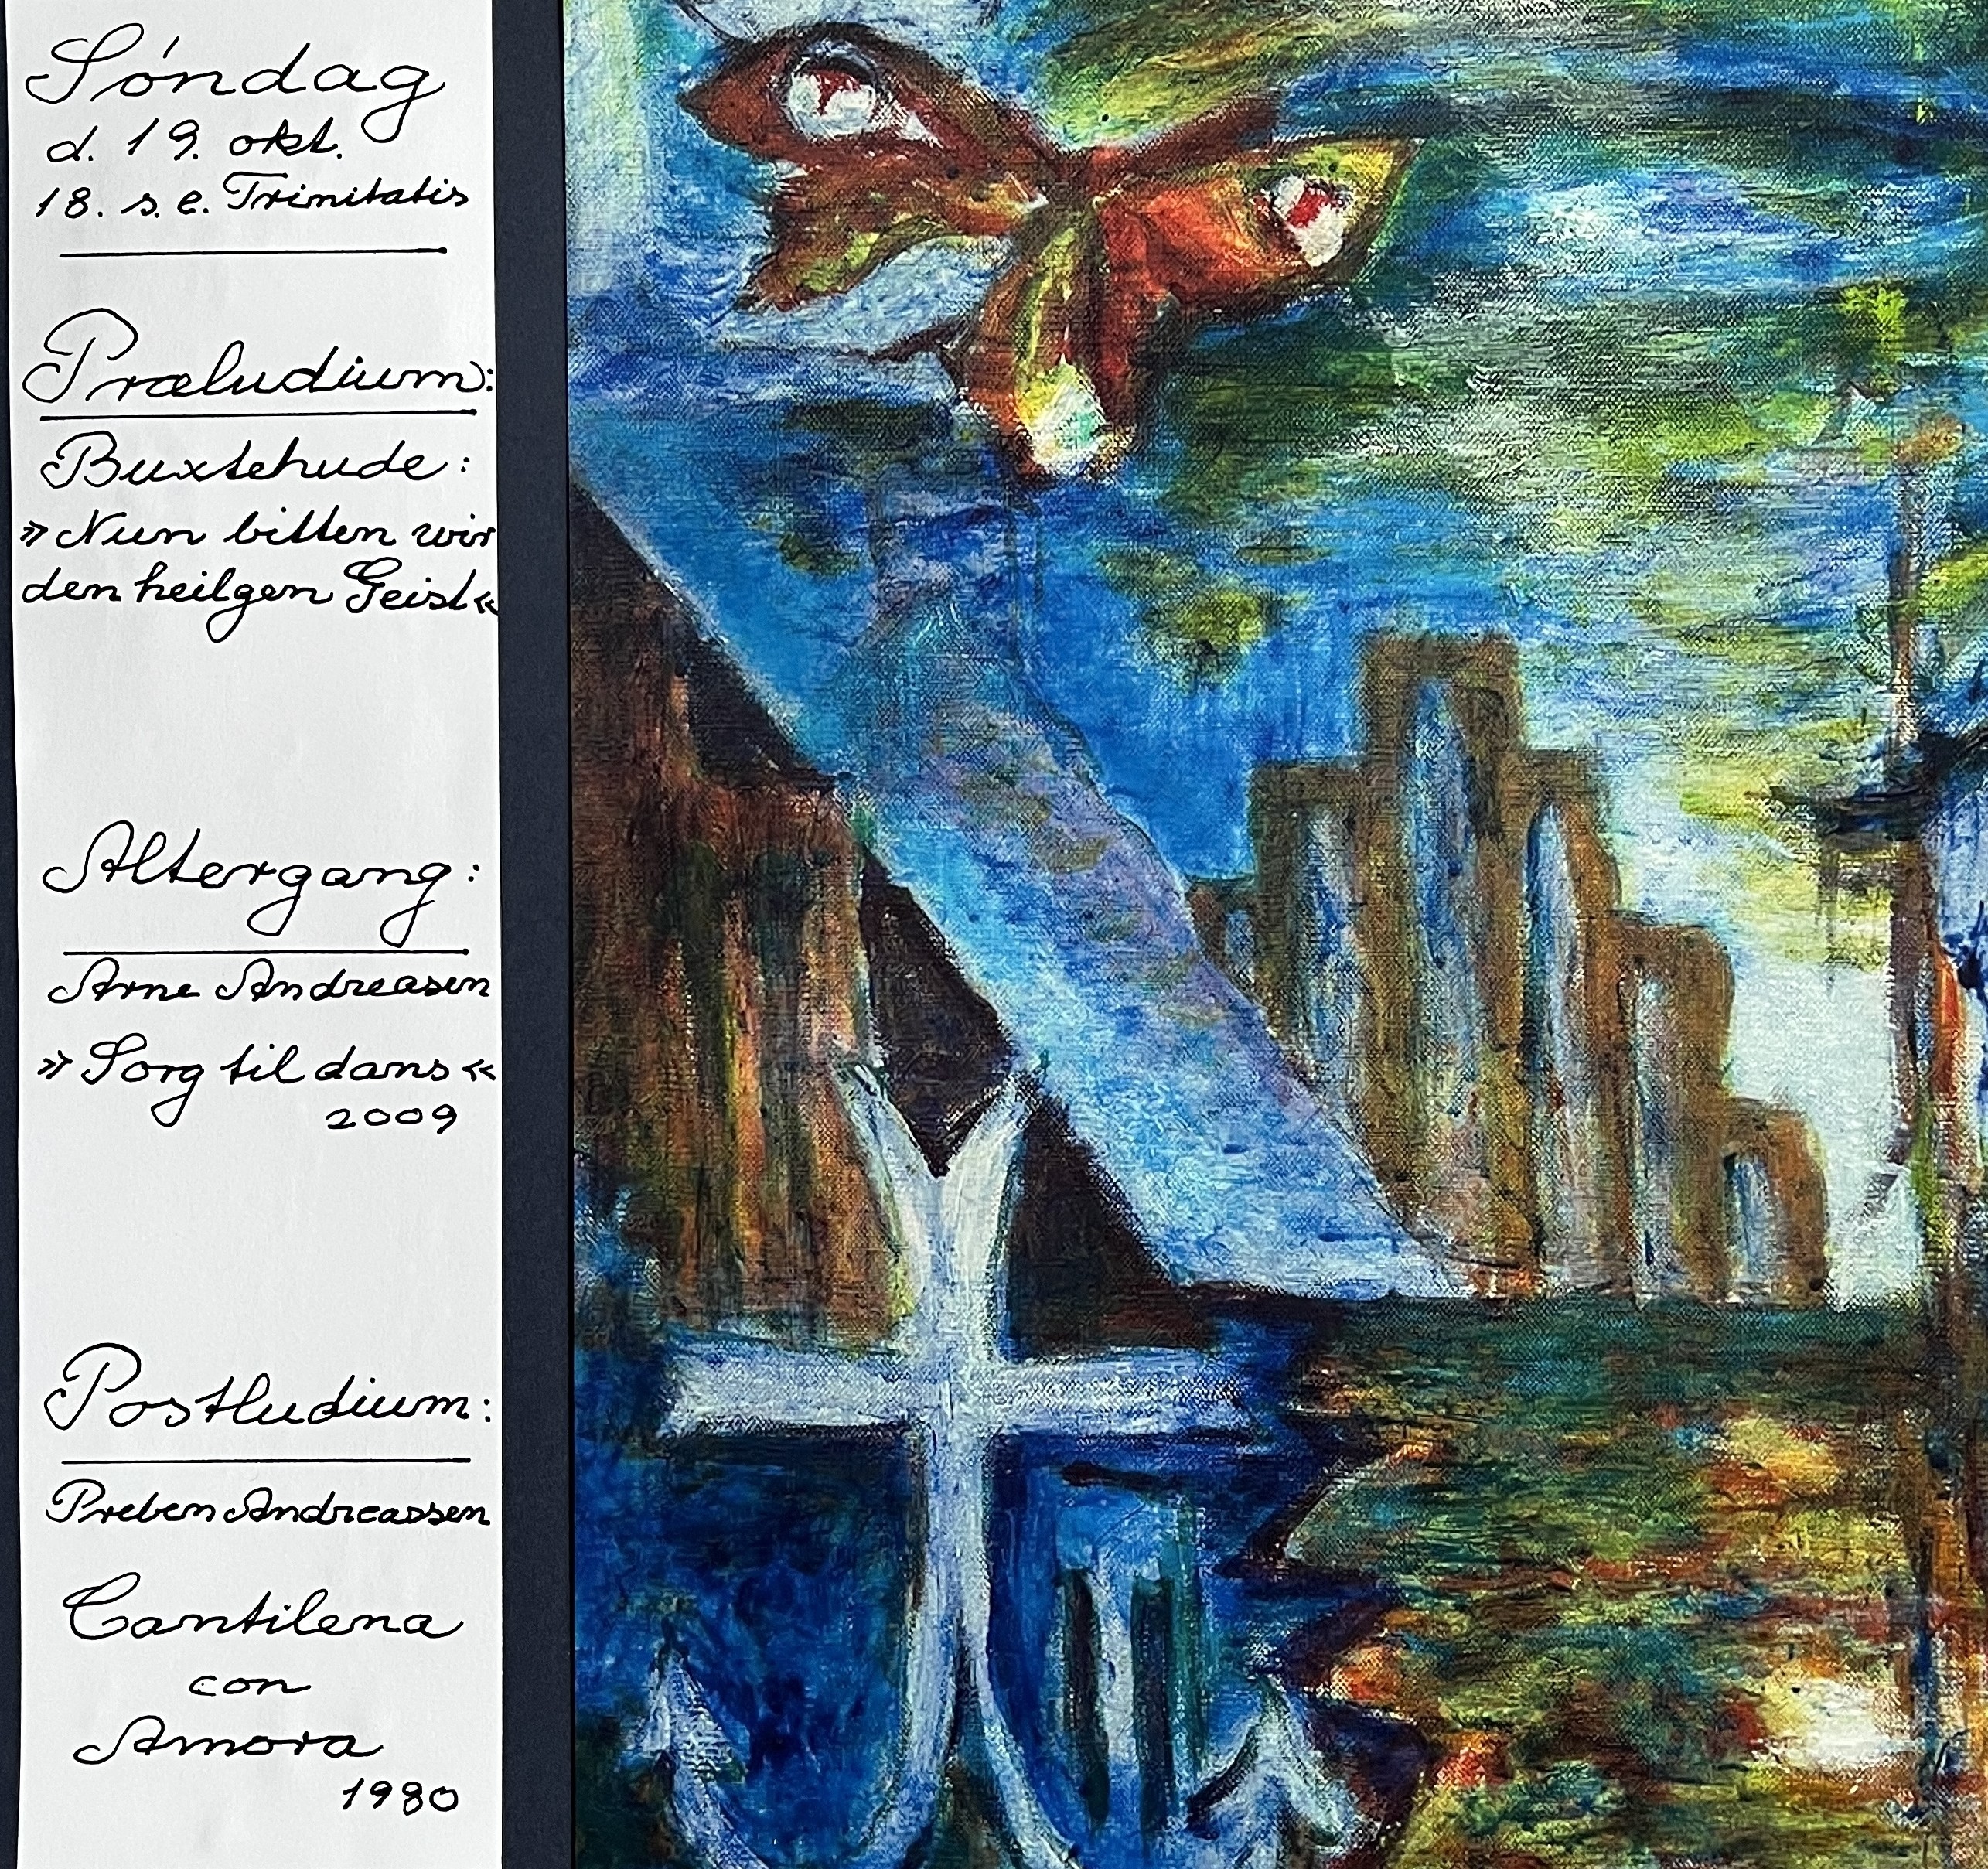 Søndag
d. 19. okt.
18. s. e. Trinitatis
Præludium:
Buxtehude:
»Nun bitten wir
den heilgen Geist«
Altergang:
Arne Andreasen
»Sorg til dans«
2009
Postludium:
Preben Andreassen
Cantilena
con
Amora
1980